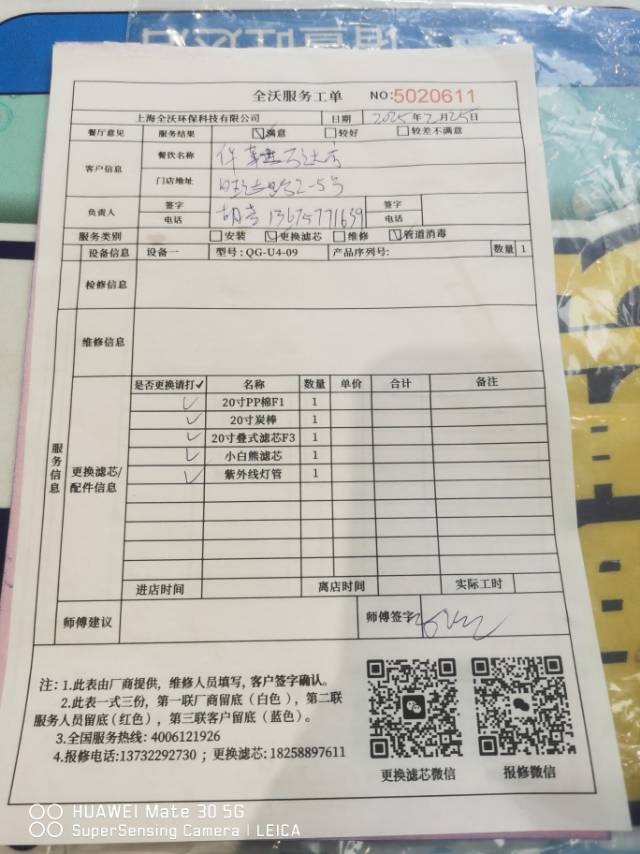 全沃服务工单 NO:5020611
上海全沃环保科技有限公司 日期 2025年2月25日
餐厅意见 服务结果 满意 较好 较差不满意
客户信息 餐饮名称
门店地址 2-5号
负责人 签字 签字
电话 13675771639 电话
服务类别 安装 更换滤芯 维修 管道消毒
设备信息 设备一 型号:QG-U4-09 产品序列号: 数量 1
检修信息
维修信息
服务信息
更换滤芯/配件信息
是否更换请打✓ 名称 数量 单价 合计 备注
✓ 20寸PP棉F1 1
✓ 20寸炭棒 1
✓ 20寸叠式滤芯F3 1
✓ 小白熊滤芯 1
✓ 紫外线灯管 1
进店时间 离店时间 实际工时
师傅建议 师傅签字
注:1.此表由厂商提供，维修人员填写,客户签字确认。
2.此表一式三份，第一联厂商留底（白色），第二联
服务人员留底(红色)，第三联客户留底（蓝色)。
3.全国服务热线: 4006121926
4.报修电话:13732292730 ; 更换滤芯: 18258897611
更换滤芯微信 报修微信
HUAWEI Mate 30 5G
SuperSensing Camera | LEICA